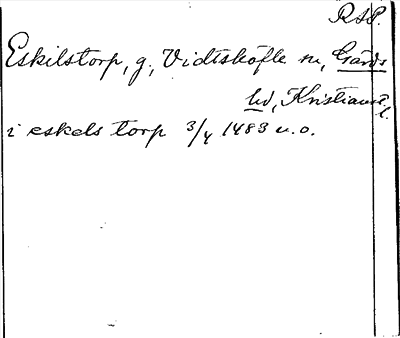 RSP.
Eskilstorp, g., Vidtsköfle sn, Gärds
hd, Kristianst.
l.
i eskels torp 3/4 1483 u. o.